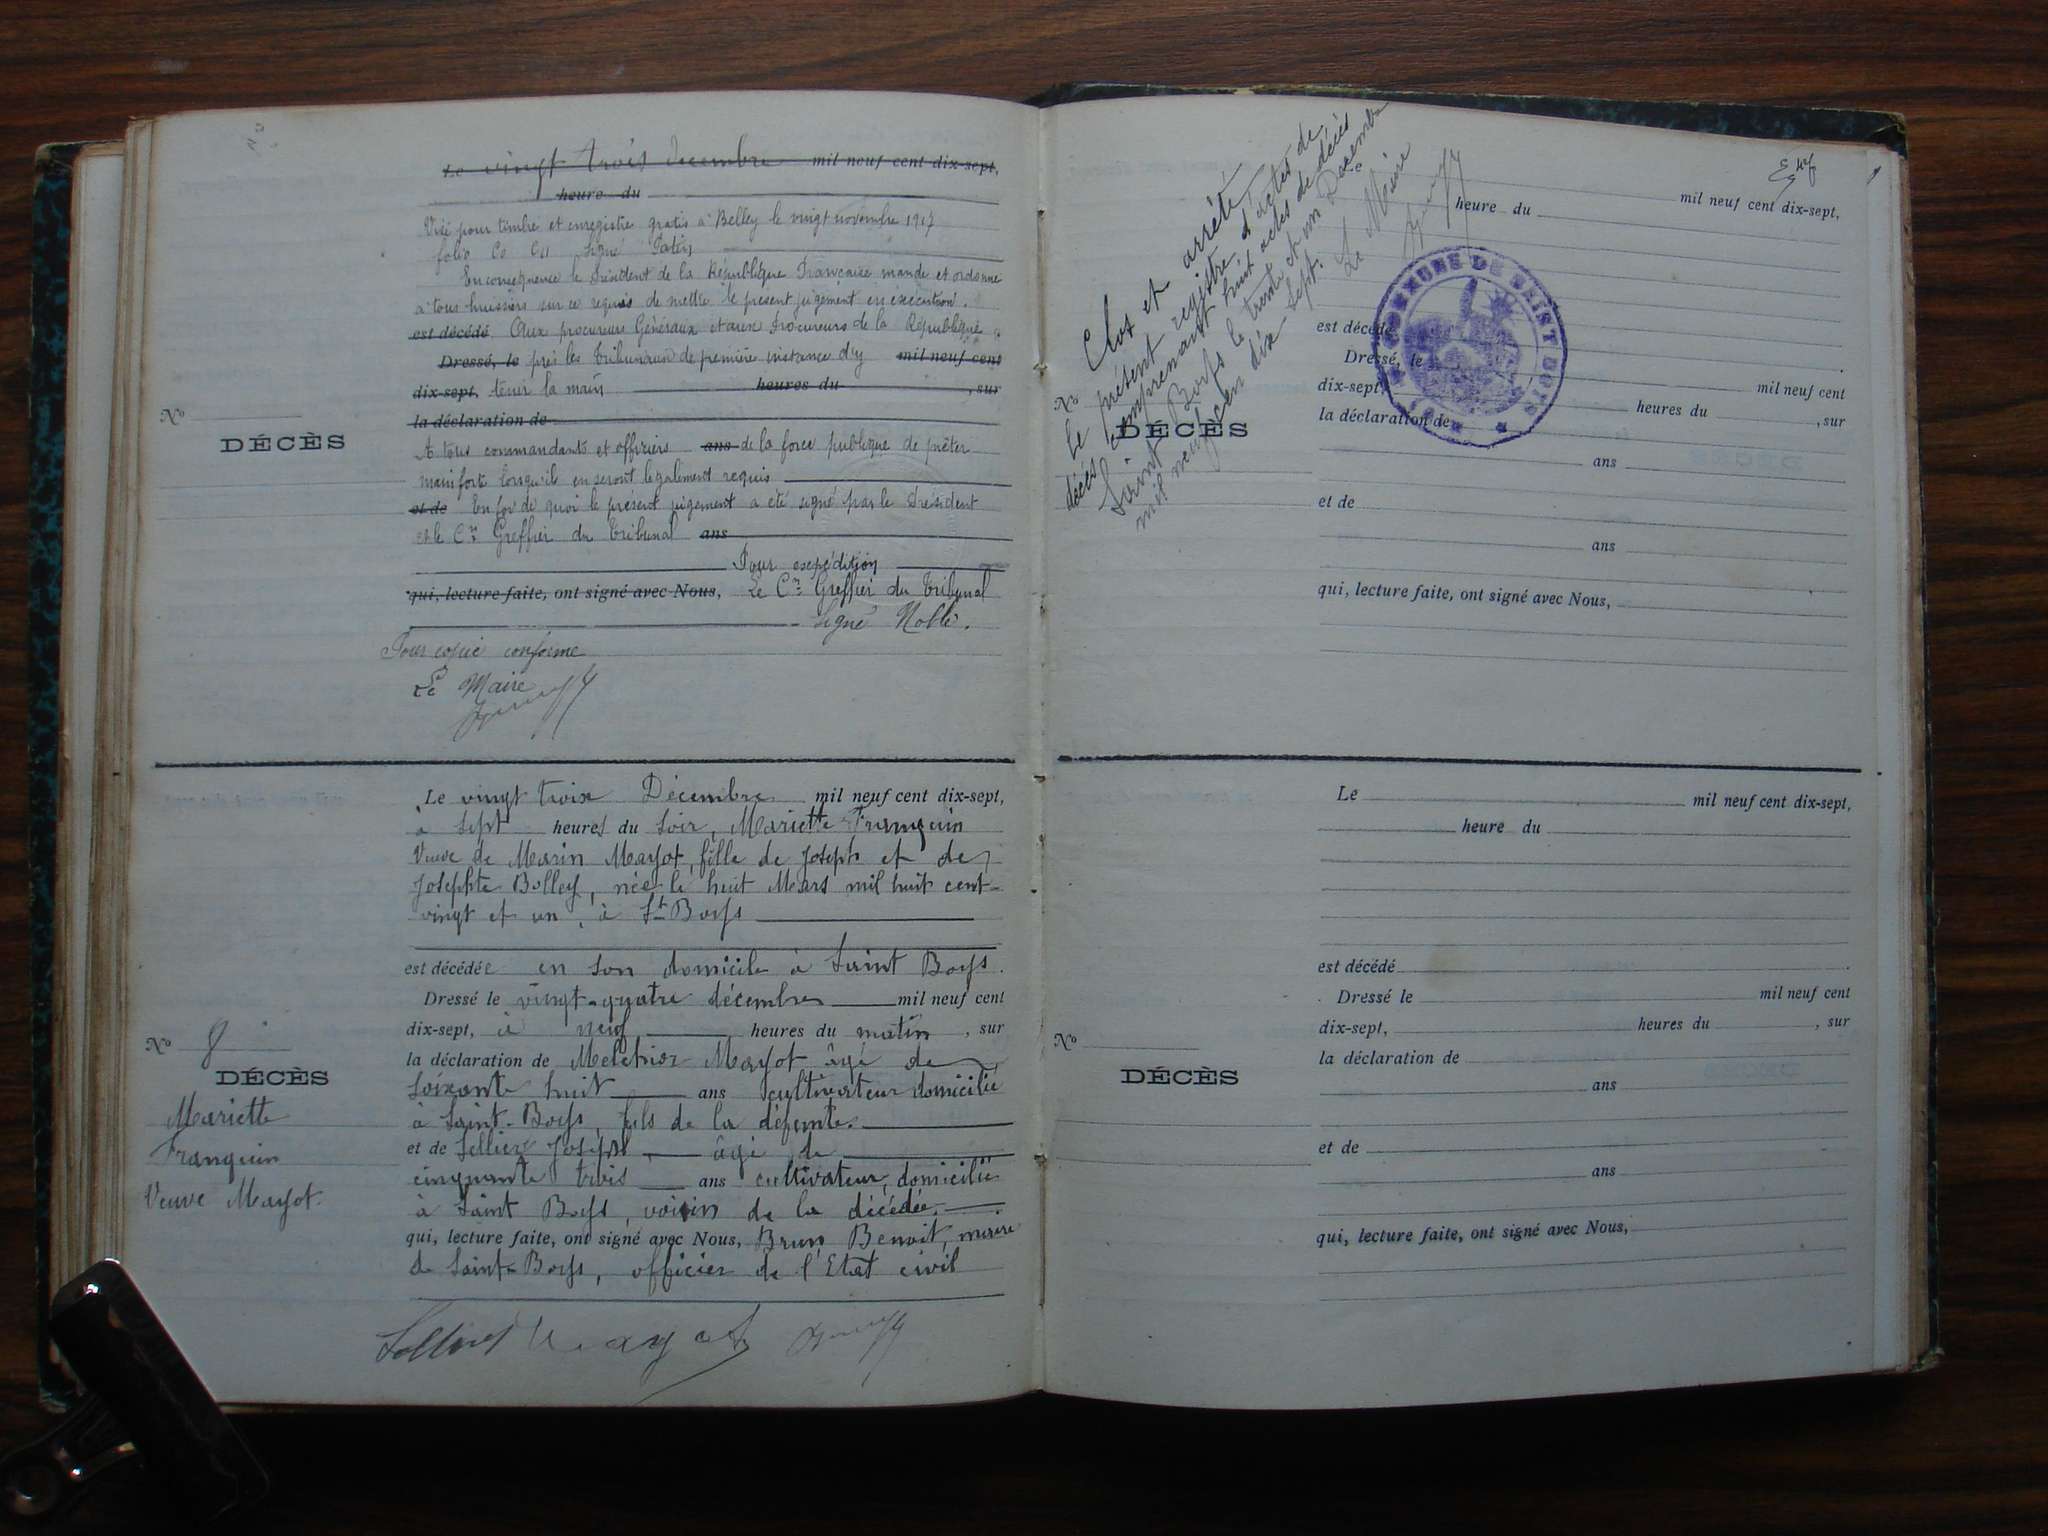 Le vingt trois decembre mil neuf cent dix-sept,
heure du
Visé pour timbre et enregistre gratis a Belley le vingt novembre 1917
folio Co Cu signé
En consequence le President de la République Francaise mande et ordonne
a tous huissiers sur ce requis de mettre le present jugement en execution.
est décédé Aux procureurs Généraux et aux Procureurs de la République
Dressé, le près les tribunaux de première instance d'y mil neuf cent
dix-sept, tenir la main heures du , sur
la déclaration de
A tous commandants et officiers ans de la force publique de prêter
main forte lorsqu'ils en seront legalement requis
et de En foi de quoi le present jugement a eté signé par le President
et le Cis Greffier du tribunal ans
Pour expédition
qui, lecture faite, ont signé avec Nous, Le Cis Greffier du Tribunal
signé Noble.
Pour copie conforme
Le Maire
No
DÉCÈS
Le vingt trois Décembre mil neuf cent dix-sept,
à sept heures du soir, Mariette Franquin
Veuve de Marin Mayot, fille de Joseph et de
Josephte Bolley, née le huit Mars mil huit cent-
vingt et un, à St Boys
est décédée en son domicile à Saint Boys.
Dressé le vingt-quatre décembre mil neuf cent
dix-sept, à neuf heures du matin, sur
la déclaration de Melchior Mayot âgé de
soixante huit ans cultivateur domicilié
à Saint-Boys, fils de la défunte.
et de Sellier Joseph, âgé de
cinquante trois ans cultivateur, domicilié
à Saint Boys, voisin de la décédée.
qui, lecture faite, ont signé avec Nous, Brun Benoit, maire
de Saint-Boys, officier de l'Etat civil
No 8
DÉCÈS
Mariette
Franquin
Veuve Mayot.
Sellier Mayot
Clos et arrêté
le présent registre d'actes de
décès comprenant huit actes de décès
Saint Boys le trente et un Decembre
mil neuf cen dix-sept.
Le Maire
COMMUNE DE SAINT BOYS
Le mil neuf cent dix-sept,
heure du
est décédé
Dressé, le mil neuf cent
dix-sept, heures du , sur
la déclaration de
ans
et de
ans
qui, lecture faite, ont signé avec Nous,
No
DÉCÈS
Le mil neuf cent dix-sept,
heure du
est décédé
Dressé le mil neuf cent
dix-sept, heures du , sur
la déclaration de
ans
et de
ans
qui, lecture faite, ont signé avec Nous,
No
DÉCÈS